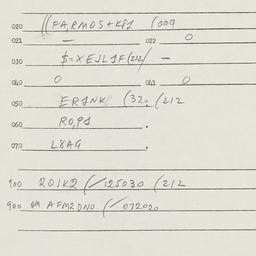 020 ((FA,RMOS+K81 (009
021 — 022 0
030 $=XEJL1F(212/ —
040 0 041 0
050 ER1NK (320 (212
060 RO,P1 .
070 L8AG .
100 201K2 (/125030 (212
900 AFM2DNO (/072020